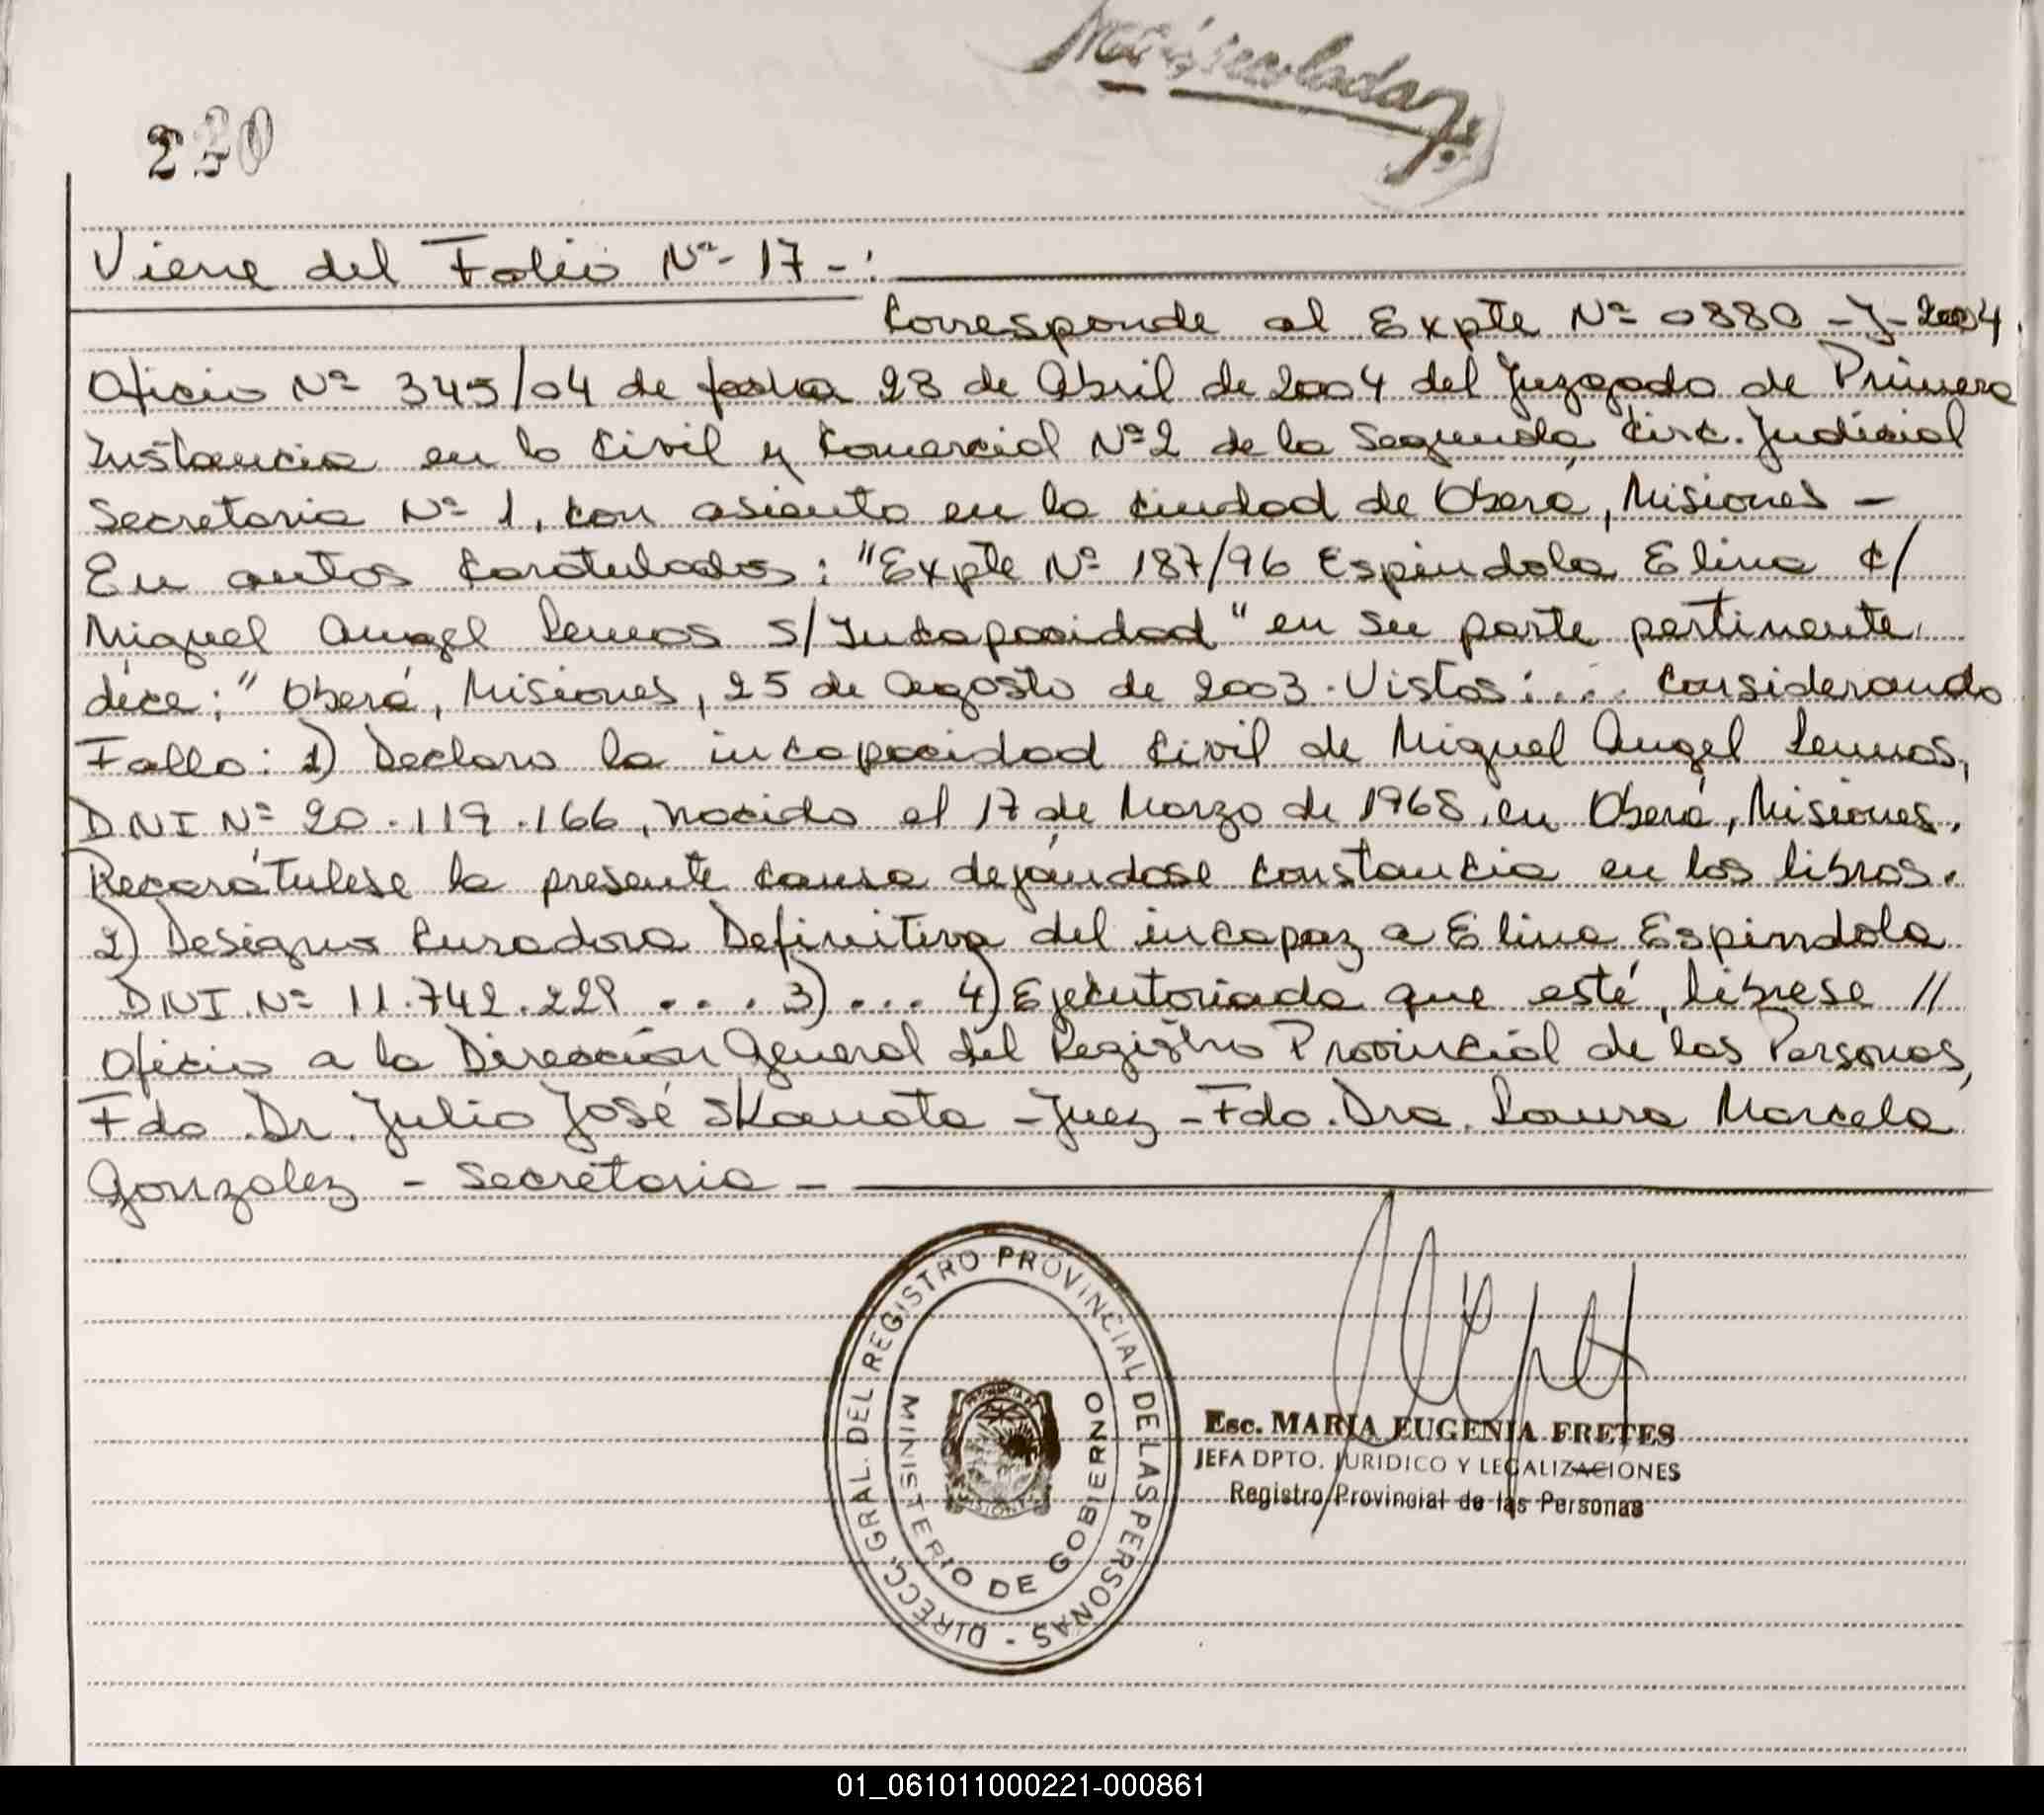 220
Viene del Folio Nº- 17 - :
Corresponde al Expte Nº 0880 - J - 2004.
Oficio Nº 345/04 de fecha 28 de Abril de 2004 del Juzgado de Primera
Instancia en lo Civil y Comercial Nº2 de la Segunda Circ. Judicial
Secretaria Nº 1, con asiento en la ciudad de Oberá, Misiones -
En autos Caratulados: "Expte Nº 187/96 Espíndola Elina c/
Miguel Angel Lemos s/Incapacidad" en su parte pertinente
dice: "Oberá, Misiones, 25 de Agosto de 2003. Vistos: ... Considerando
Fallo: 1) Declaro la incapacidad Civil de Miguel Angel Lemos,
DNI Nº 20.119.166, nacido el 17 de Marzo de 1968, en Oberá, Misiones.
Recarátulese la presente causa dejándose constancia en los libros.
2) Designo Curadora Definitiva del incapaz a Elina Espindola
DNI. Nº 11.742.229 .... 3) ... 4) Ejecutoriada que esté, líbrese //
Oficio a la Dirección General del Registro Provincial de las Personas,
Fdo Dr. Julio José Skanata - Juez - Fdo. Dra. Laura Marcela
Gonzalez - Secretaria -
DIRECC. GRAL. DEL REGISTRO PROVINCIAL DE LAS PERSONAS -
MINISTERIO DE GOBIERNO
Esc. MARIA EUGENIA FRETES
JEFA DPTO. JURIDICO Y LEGALIZACIONES
Registro Provincial de las Personas
01_061011000221-000861